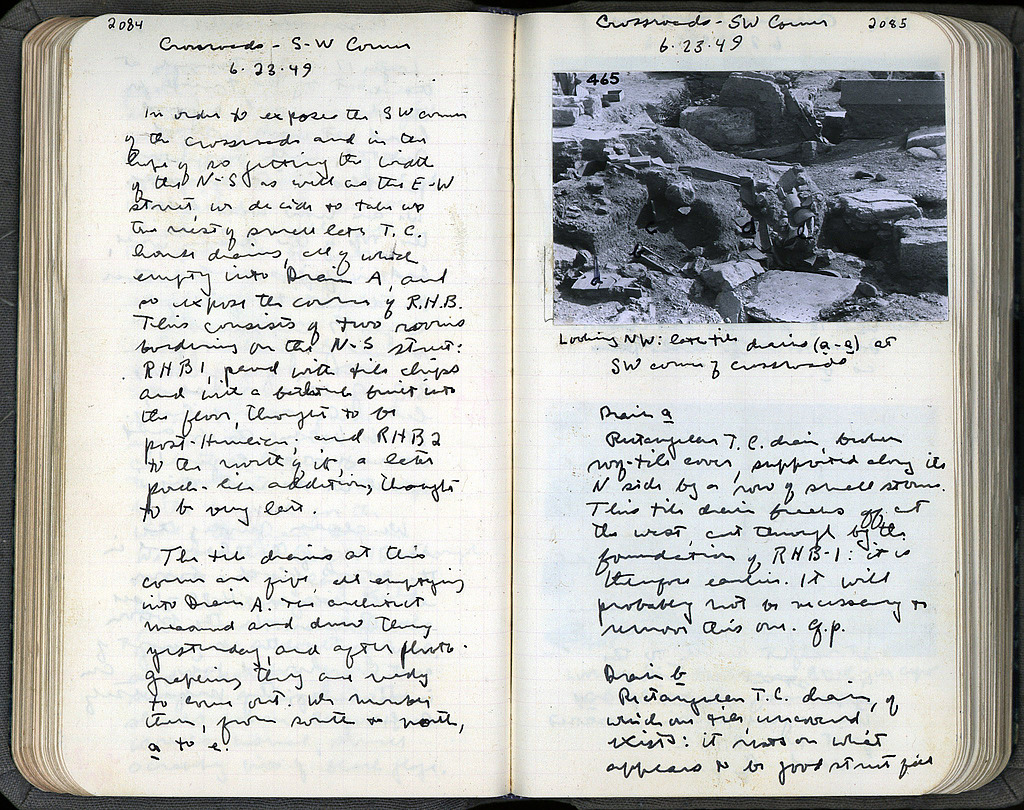 2084
Crossroads - S-W Corner
6.23.49
In order to expose the SW corner
of the crossroads and in the
hope of so getting the width
of the N-S as well as the E-W
street, we decide to take up
the nest of small late T.C.
house drains, all of which
empty into Drain A, and
so expose the corner of R.H.B.
This consists of two rooms
bordering on the N-S street:
RHB1, paved with tile chips
and with a built into
the floor, thought to be
post-Herulian; and RHB2
to the north of it, a later
porch-like addition, thought
to be very late.
The tile drains at this
corner are five, all emptying
into Drain A. The architect
measured and drew them
yesterday, and after photo-
graphing they are ready
to come out. We number
them, from south to north,
a to e.
Crossroads - SW Corner
2085
6.23.49
465
Looking NW: late tile drains (a-g) at
SW corner of crossroads
Drain a
Rectangular T.C. drain, broken
roof-tile cover, supported along its
N side by a row of small stones.
This tile drain breaks off at
the west, cut through by the
foundation of RHB-1: it is
therefore earlier. It will
probably not be necessary to
remove this one. G.P.
Drain b
Rectangular T.C. drain, of
which one tile uncovered
exists: it rests on what
appears to be good street